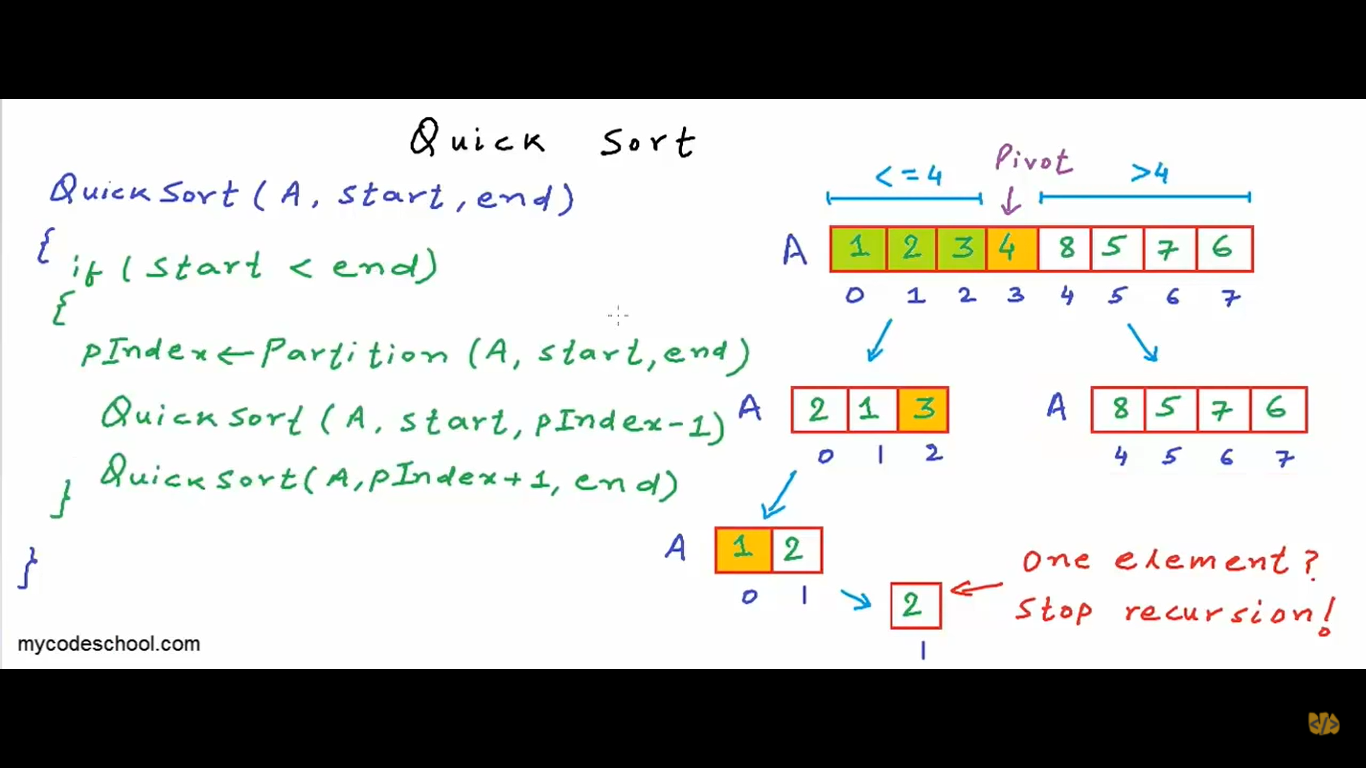 Quick Sort
QuickSort(A, start, end)
{
if (start < end)
{
pIndex ← Partition (A, start, end)
QuickSort (A, start, pIndex-1)
QuickSort(A, pIndex+1, end)
}
}
mycodeschool.com
Pivot
<=4 >4
A 1 2 3 4 8 5 7 6
0 1 2 3 4 5 6 7
A 2 1 3
0 1 2
A 8 5 7 6
4 5 6 7
A 1 2
0 1
2
1
One element?
Stop recursion!